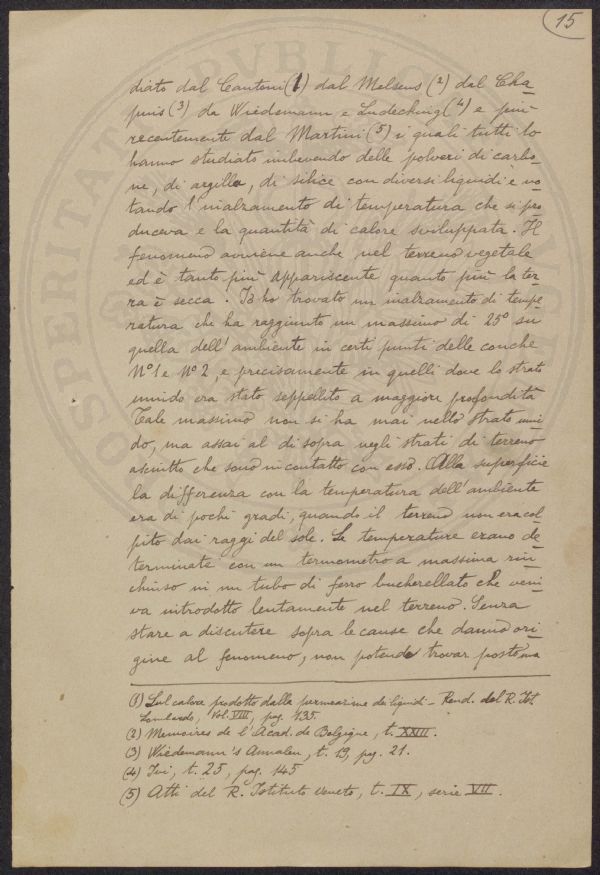 15
diato dal Cantoni (1) dal Melsens (2) dal Cha-
puis (3) da Wiedemann e Ludeching (4) e più
recentemente dal Martini (5) i quali tutti lo
hanno studiato imbevendo delle polveri di carbo-
ne, di argilla, di silice con diversi liquidi e no-
tando l'inalzamento di temperatura che si pro-
duceva e la quantità di calore sviluppata. Il
fenomeno avviene anche nel terreno vegetale
ed è tanto più appariscente quanto più la ter-
ra è secca. Io ho trovato un inalzamento di tempe-
ratura che ha raggiunto un massimo di 25° su
quella dell'ambiente in certi punti delle conche
N° 1 e N° 2, e precisamente in quelli dove lo strato
umido era stato seppellito a maggiore profondità
Tale massimo non si ha mai nello strato umi-
do, ma assai al di sopra negli strati di terreno
asciutto che sono in contatto con esso. Alla superficie
la differenza con la temperatura dell'ambiente
era di pochi gradi, quando il terreno non era col-
pito dai raggi del sole. Le temperature erano de-
terminate con un termometro a massima rin-
chiuso in un tubo di ferro bucherellato che veni-
va introdotto lentamente nel terreno. Senza
stare a discutere sopra le cause che danno ori-
gine al fenomeno, non potendo trovar posto una
(1) Sul calore prodotto dalla permeazione dei liquidi - Rend. del R. Ist.
Lombardo, Vol. VIII, pag. 135.
(2) Memoires de l'Acad. de Belgique, t. XXIII.
(3) Wiedemann's Annalen, t. 19, pag. 21.
(4) Ivi, t. 25, pag. 145
(5) Atti del R. Istituto Veneto, t. IX, serie VII.